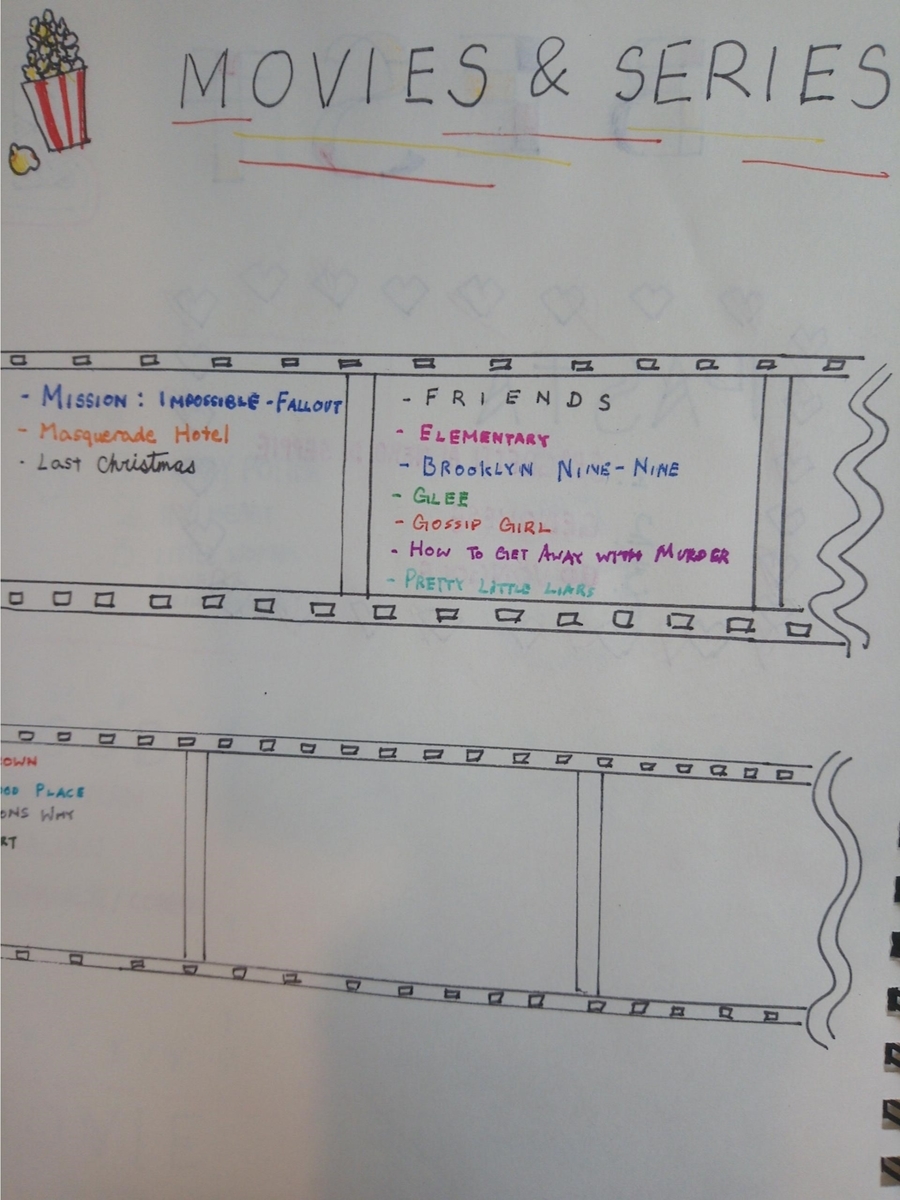 MOVIES & SERIES
- MISSION: IMPOSSIBLE - FALLOUT
- Masquerade Hotel
- Last Christmas
- FRIENDS
- ELEMENTARY
- BROOKLYN NINE-NINE
- GLEE
- GOSSIP GIRL
- HOW TO GET AWAY WITH MURDER
- PRETTY LITTLE LIARS
OWN
PLACE
ONS WHY
RT